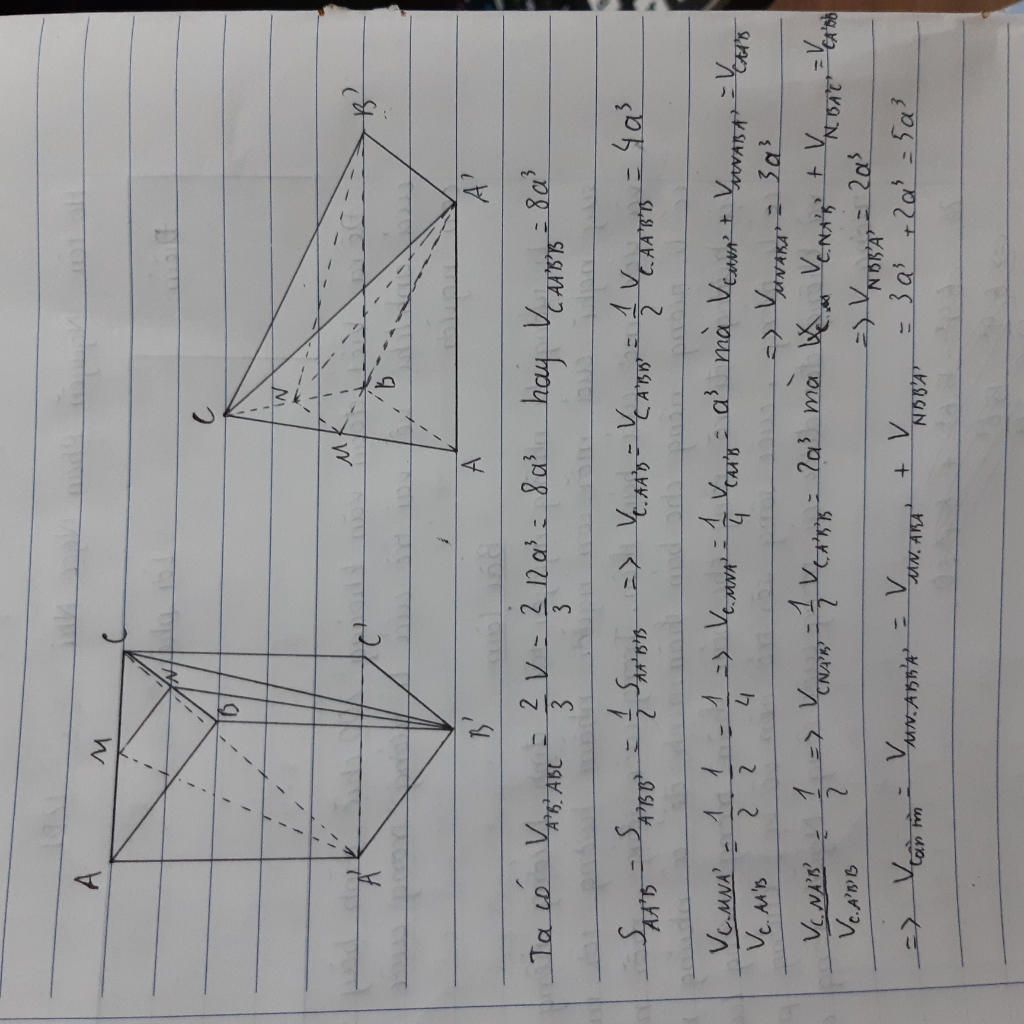 A
M
C
N
B
A'
C'
B'
C
N
M
B
B'
A
A'
Ta có V_{A'B'.ABC} = \frac{2}{3} V = \frac{2}{3} 12a³ = 8a³ hay V_{C.AA'B'B} = 8a³
S_{AA'B} = S_{A'BB'} = \frac{1}{2} S_{AA'B'B} => V_{C.AA'B} = V_{C.A'BB'} = \frac{1}{2} V_{C.AA'B'B} = 4a³
\frac{V_{C.MNA'}}{V_{C.AA'B}} = \frac{1}{2} . \frac{1}{2} = \frac{1}{4} => V_{C.MNA'} = \frac{1}{4} V_{CAA'B} = a³ mà V_{C.MNA'} + V_{MNABA'} = V_{CAA'B}
=> V_{MNABA'} = 3a³
\frac{V_{C.NA'B'}}{V_{C.A'B'B}} = \frac{1}{2} => V_{CNA'B'} = \frac{1}{2} V_{CA'B'B} = 2a³ mà V_{C.NA'B'} + V_{NBA'B'} = V_{CA'BB'}
=> V_{NBB'A'} = 2a³
=> V_{cần tìm} = V_{MN.ABB'A'} = V_{MN.ABA'} + V_{NBB'A'} = 3a³ + 2a³ = 5a³